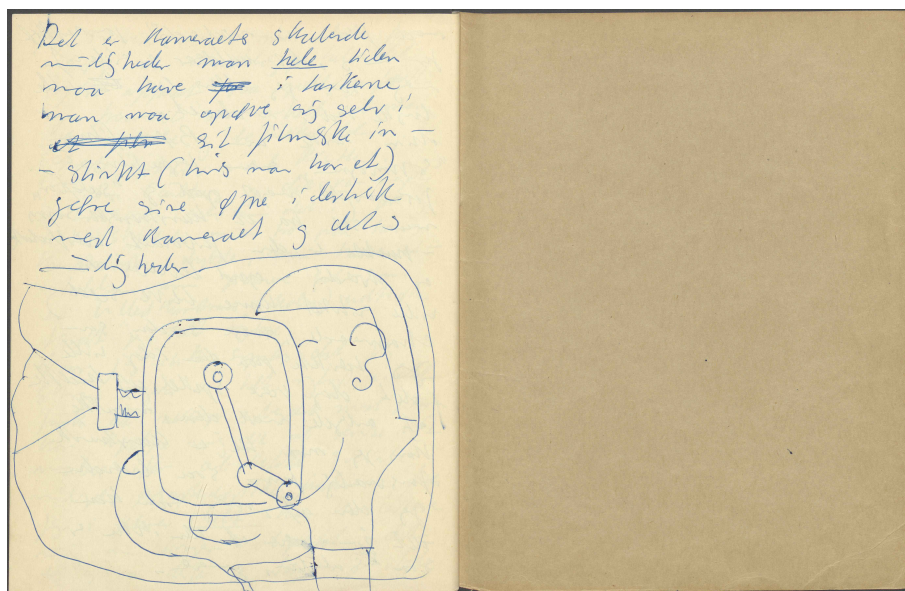 Det er Kameraets skabende
muligheder man hele tiden
maa have i tankerne
man maa opøve sig selv i
sit filmiske in –
– stinkt (hvis man har et)
sine i
med Kameraet og dets
muligheder